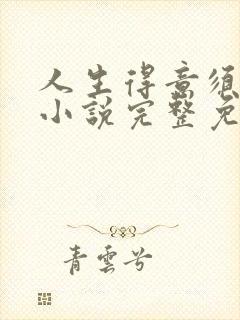 人生得意须
小說完整免
青雲兮